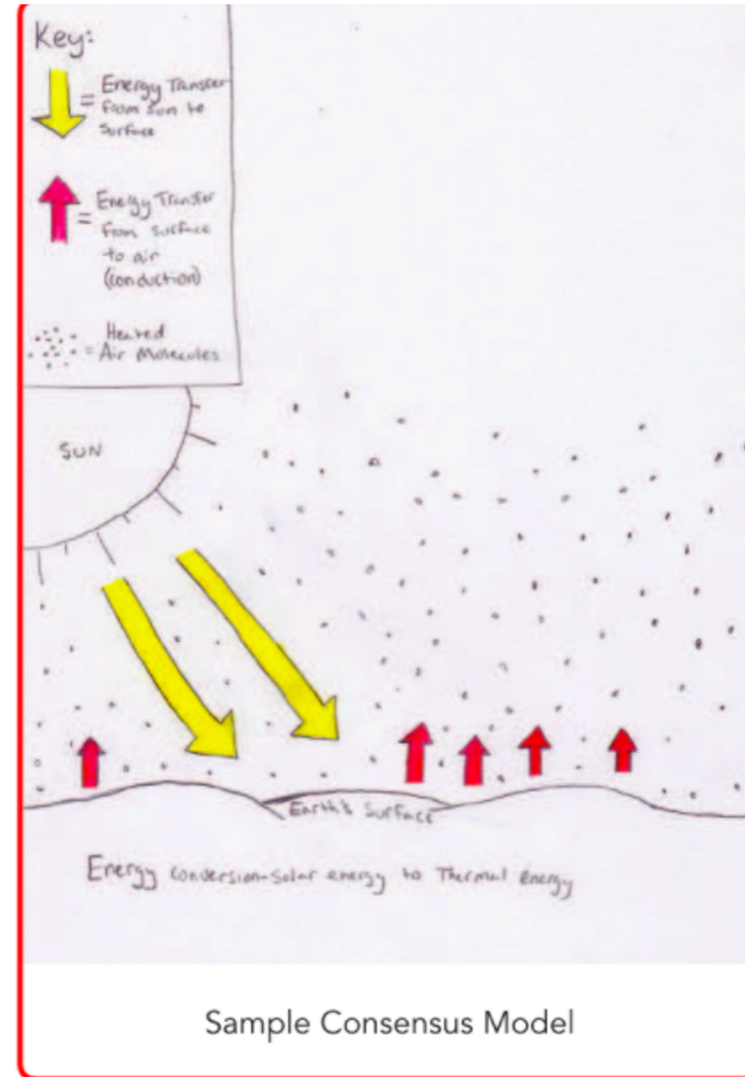 Key:
= Energy Transfer
from Sun to
Surface
= Energy Transfer
from surface
to air
(conduction)
= Heated
Air Molecules
SUN
Earth's Surface
Energy conversion-solar energy to Thermal energy
Sample Consensus Model